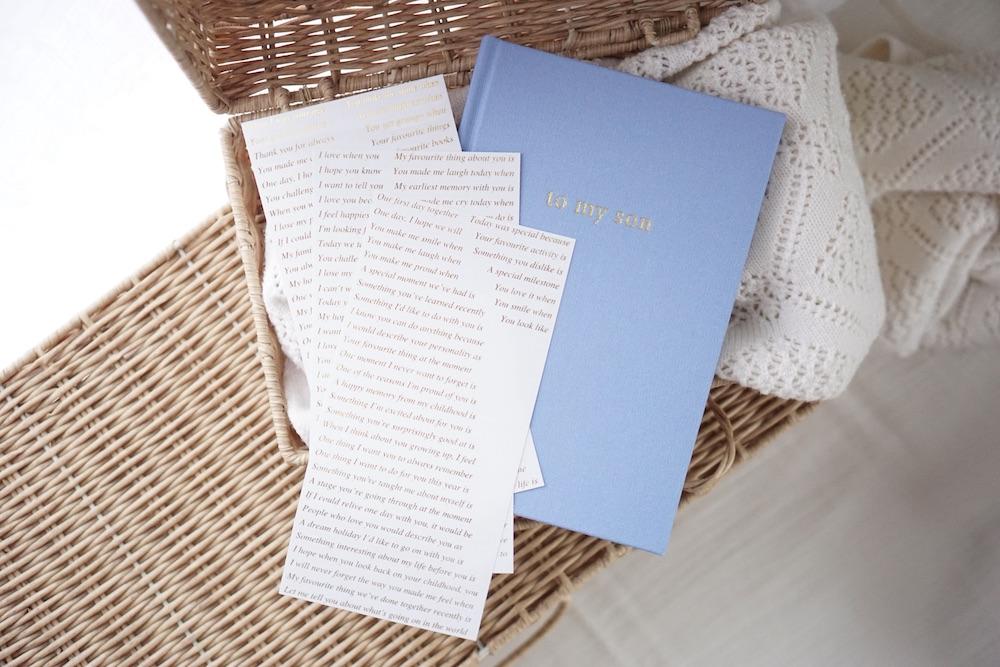 to my son
You get grumpy when
Thank you for always
Your favourite things
You made me
favourite books
One day, I
You challeng
When you
I lose my
If I could
My fam
You alw
I love when you
I hope you know
I want to tell you
I love you bec
I feel happies
I'm looking
Today we
You challe
I lose my
I can't w
Today
My hop
I want
My favourite thing about you is
You made me laugh today when
My earliest memory with you is
made me cry today when
do is
Today was special because
Your favourite activity is
Something you dislike is
A special milestone
You love it when
You smile when
You look like
life is
Our first day together
One day, I hope we will
You make me smile when
You make me laugh when
You make me proud when
A special moment we've had is
Something you've learned recently
Something I'd like to do with you is
I know you can do anything because
I would describe your personality as
Your favourite thing at the moment
One moment I never want to forget is
One of the reasons I'm proud of you is
A happy memory from my childhood is
Something I'm excited about for you is
Something you're surprisingly good at is
When I think about you growing up, I feel
One thing I want you to always remember
One thing I want to do for you this year is
Something you've taught me about myself is
A stage you're going through at the moment
If I could relive one day with you, it would be
People who love you would describe you as
A dream holiday I'd like to go on with you is
Something interesting about my life before you is
I hope when you look back on your childhood, you
I will never forget the way you made me feel when
My favourite thing we've done together recently is
Let me tell you about what's going on in the world